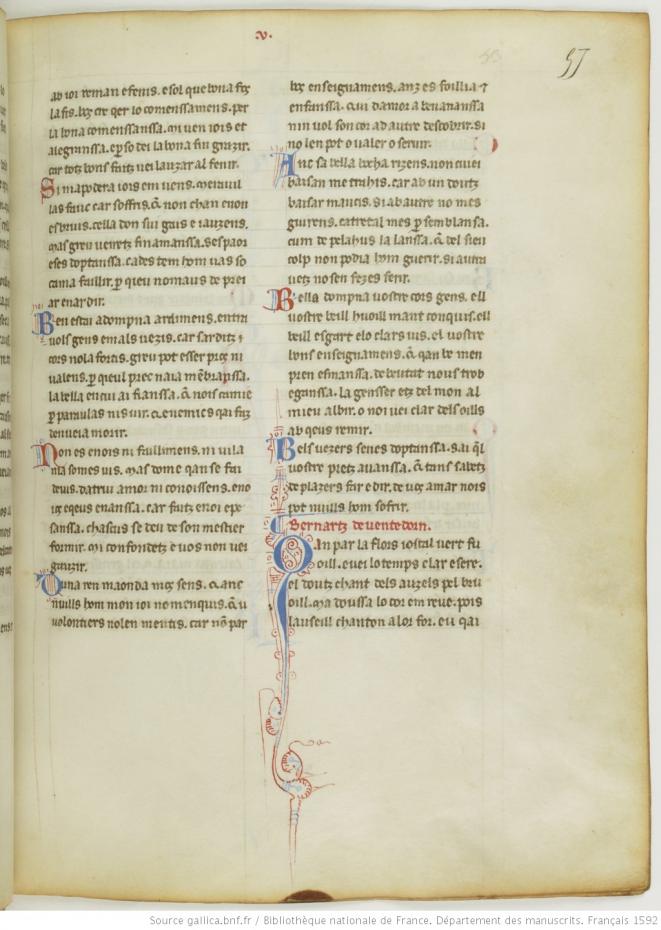 .v.
57
ab ioi reman e fenis. e sol que bona fos
la fis. bos cre qer lo comenssamens. per
la bona comenssanssa. mi uen iois et
alegranssa. e per so dei la bona fin grazir.
car totz bons faitz uei lauzar al fenir.
Si mapodera iois em uens. merauil
las fauc car o soffris. q̄ non chan enon
esbruis. cella don sui gais e iauzens.
mas greu ueiretz fin amanssa. ses paor
e ses doptanssa. cades tem hom uas so
cama faillir. per qieu nomaus de prei
ar enardir.
Ben estai a dompna ardimens. entra
uols gens em als uezis. car sarditz
cors nola fortis. greu pot esser pros ni
ualens. p̄ qieul prec naia mēbranssa.
la bella en cui ai fianssa. q̄ nois camie
p̄ paraulas nis uir. q̄ enemics qai fatz
denueia morir.
Non es enois ni faillimens. ni uila
nia so mes uis. mas dome qan se fai
deuis. dautrui amor ni conoissens. eno
ios e qeus enanssa. car faitz enoi e pe
sanssa. chascus se deu de son mestier
formir. mi confondetz e uos non uei
gauzir.
Duna ren maonda mos sens. q̄ anc
nuills hom mon ioi no men quis. q̄ u
volontiers nolen mentis. car nōm par
bos enseignamens. anz es foillia ⁊
enfanssa. cui damor a benananssa
nin uol son cor ad autre descobrir. si
no len pot o ualer o seruir.
Anc sa bella bocha rizens. non cuiei
baisan me trahis. car ab un doutz
baisar maucis. si ab autre no mes
guirens. catretal mes p̄ semblansa.
cum de pelahus la lanssa. q̄ del sieu
colp non podia hom guerir. si autra
uetz no sen fezes ferir.
Bella dompna uostre cors gens. ell
uostre beill huoill mant conquis. eill
beill esgart e lo clars uis. el uostre
bons enseignamens. q̄ qan be men
pren esmanssa. de beutat nous trob
eganssa. la gensser etz del mon al
mieu albir. o noi uei clar dels oills
ab qeus remir.
Bels uezers senes doptanssa. sai qel
uostre pretz auanssa. q̄ tans sabetz
de plazers far e dir. de uos amar nois
pot nuills hom sofrir.
Bernartz de uentedorn.
Qan par la flors iostal vert fu
oill. e uei lo temps clar e sere.
el doutz chant dels auzels pel bru
oill. ma doussa lo cor em reue. pois
lauseill chanton a lor for. eu qai
Source gallica.bnf.fr / Bibliothèque nationale de France. Département des manuscrits. Français 1592